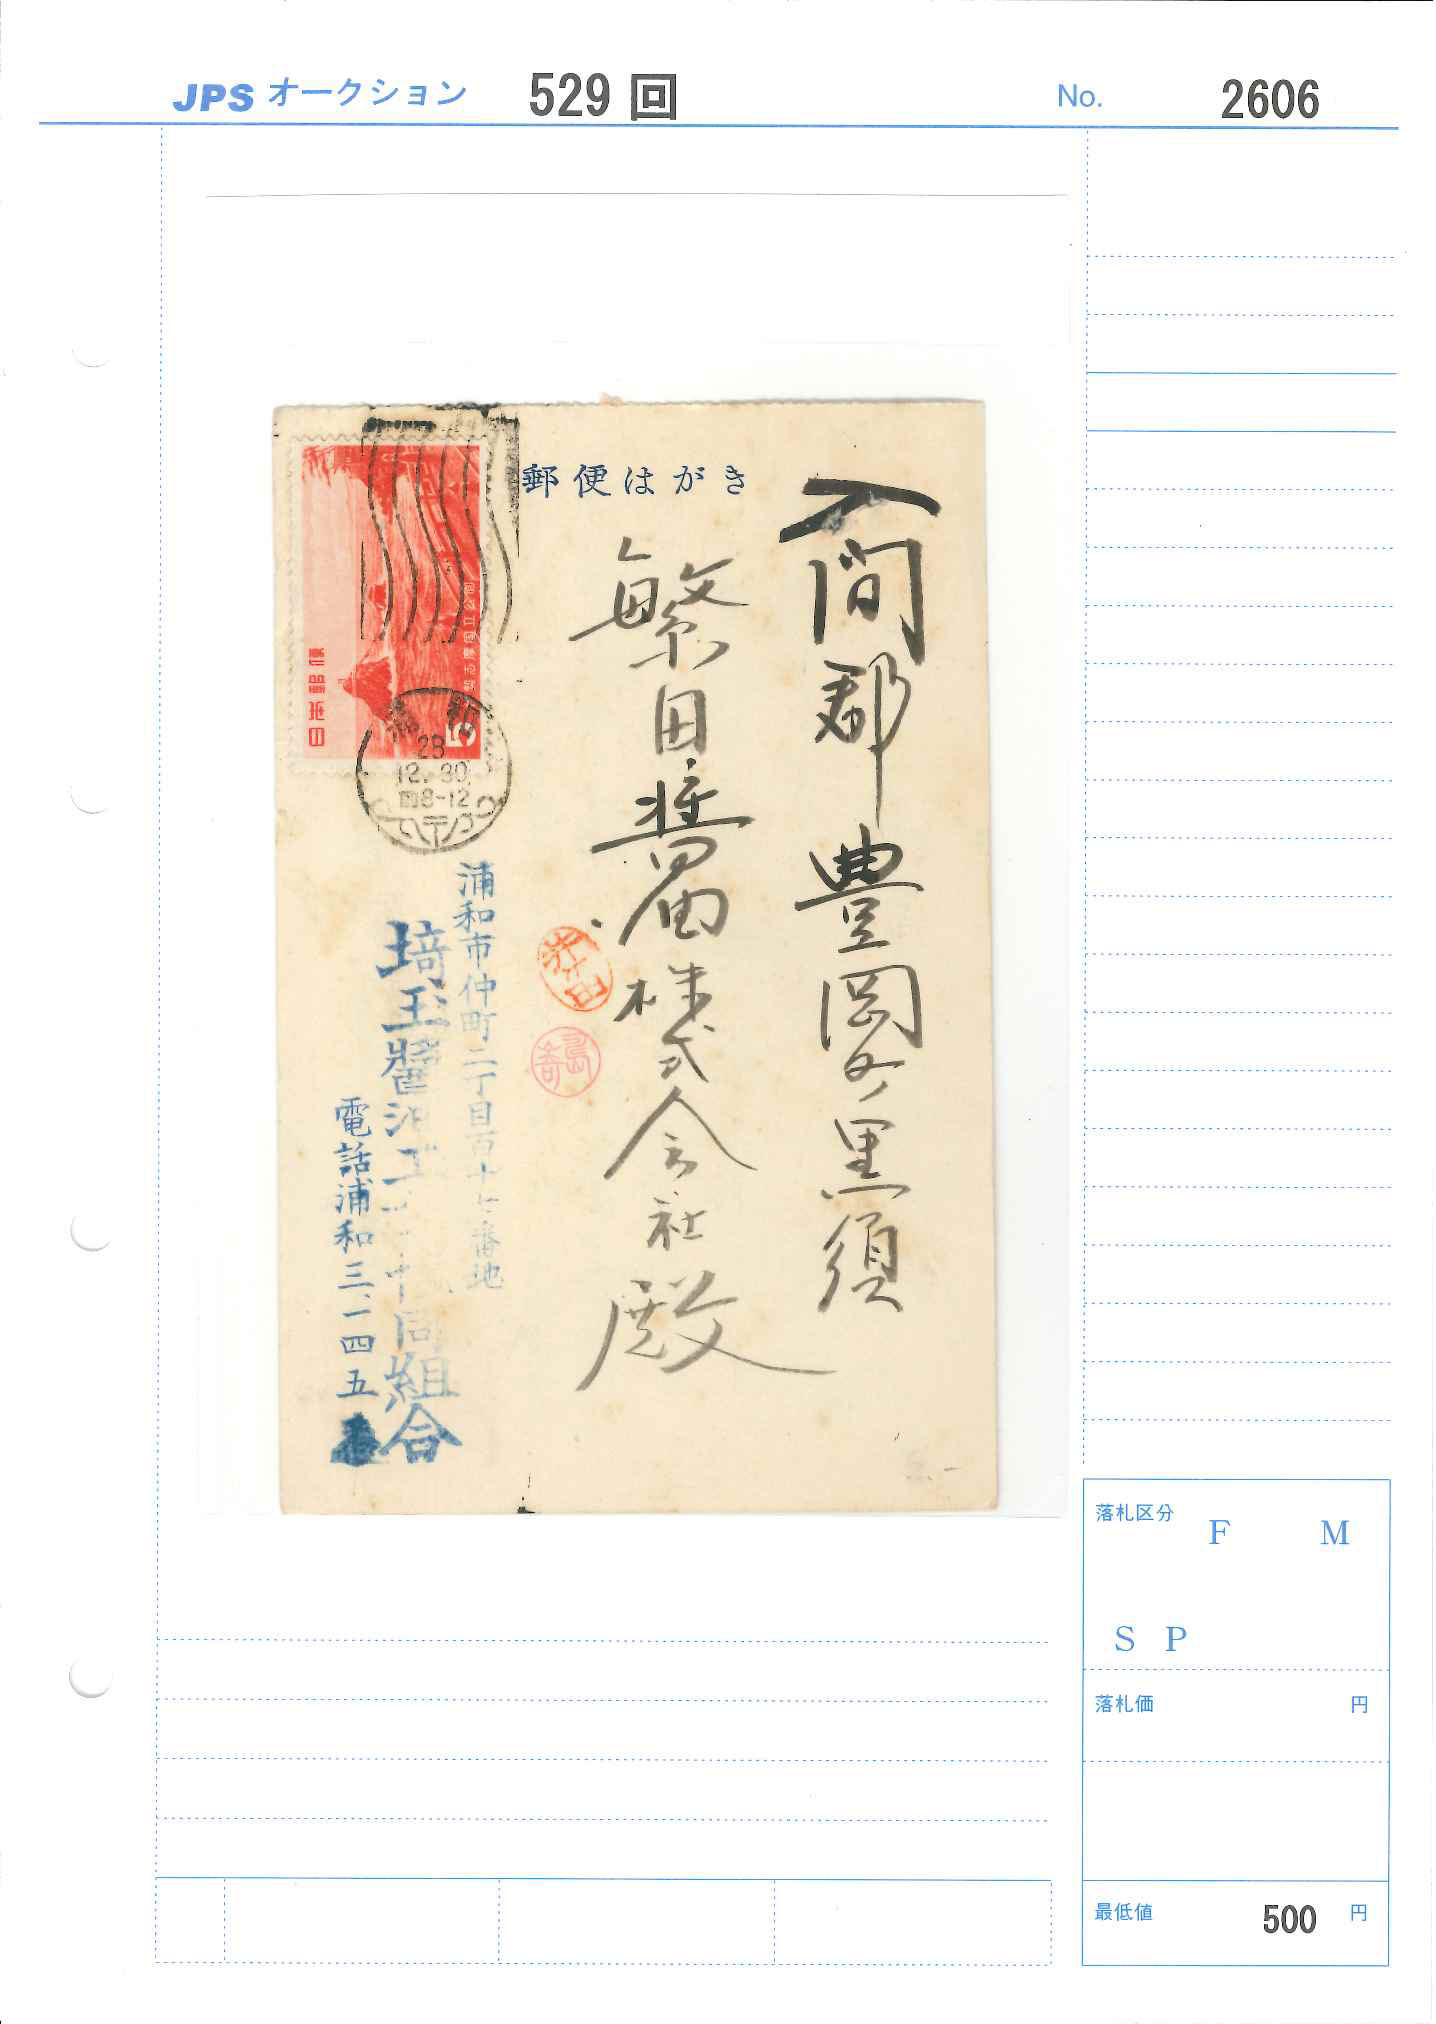 JPS オークション 529 回 No. 2606
郵便はがき
日本郵便
5
浦和
28
12.30
前8-12
入間郡豊岡町黒須
繁田醤油株式会社殿
島崎
浦和市仲町二丁目百十七番地
埼玉醤油工 同組合
電話浦和三、一四五
落札区分 F M
S P
落札価 円
最低値 500 円